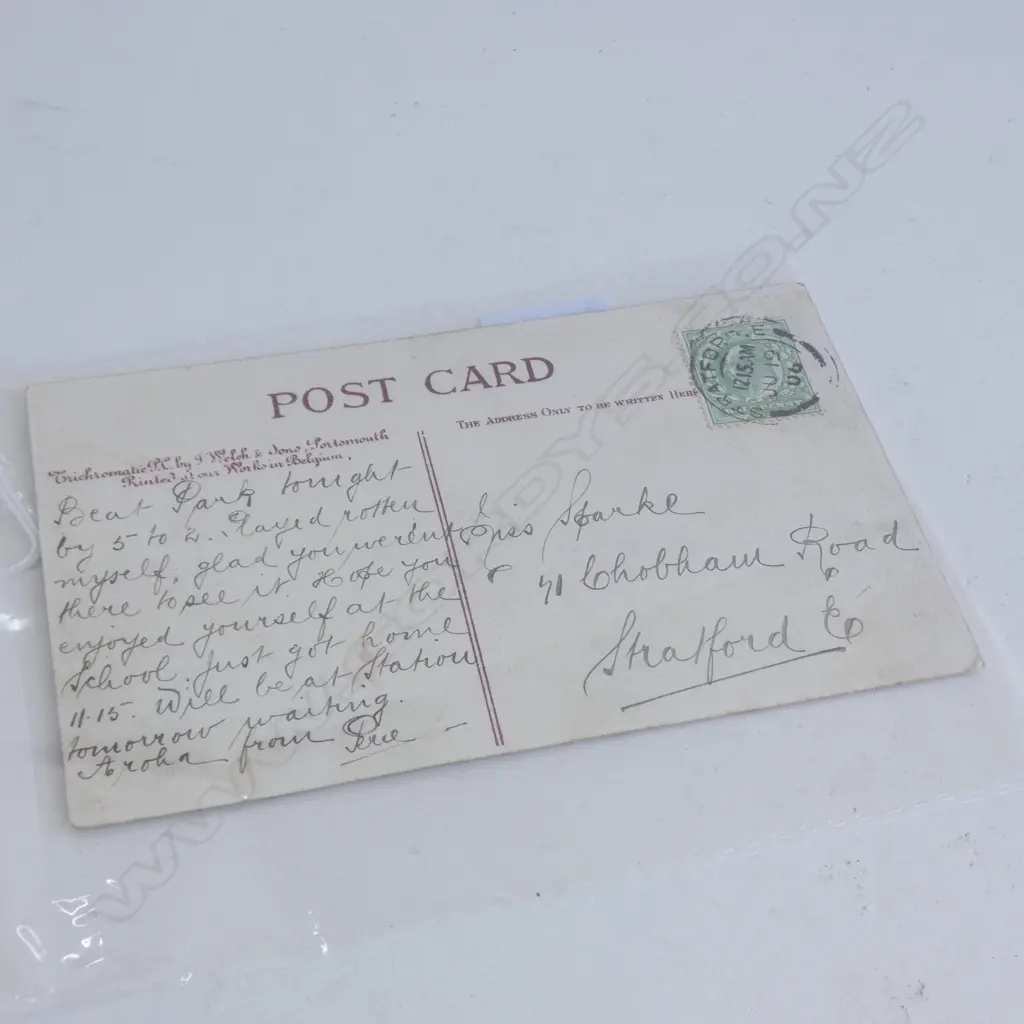 POST CARD
Trichromatic P.C. by J Welch & Sons, Portsmouth
Printed at our Works in Belgium.
THE ADDRESS ONLY TO BE WRITTEN HERE
STRATFORD. E
12.15 AM
JU 19
06
Beat Park tonight
by 5 to 2. Played rotten
myself, glad you weren't
there to see it. Hope you
enjoyed yourself at the
School. Just got home
11.15. Will be at Station
tomorrow waiting.
Aroha from Percie
Miss Sparke
71 Chobham Road
Stratford E